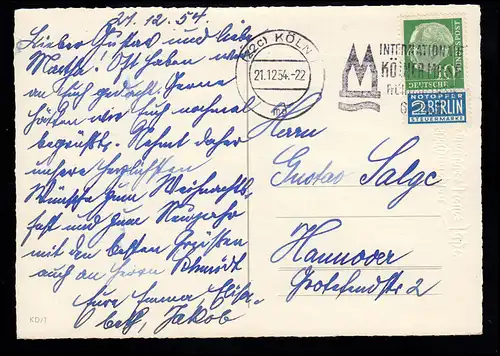 21.12.54.
Lieber Gustav und liebe
Martha! Oft haben wir
an Euch gedacht. Gerne
hätten wir Euch nochmal
begrüßt. Nehmt daher
unsere herzlichsten
Wünsche zum Weihnachts-
fest und zum Neujahr
mit den besten Grüßen
auch an Herrn Schmidt
Eure Emma, Elisa-
beth, Jakob
KD/1
(22c) KÖLN
21.12.54.-22
INTERNATION
KÖLNER
DEUTSCHE
BUNDESPOST
10
NOTOPFER
2 BERLIN
STEUERMARKE
Herrn
Gustav Salge
Hannover
Grotefendstr 2